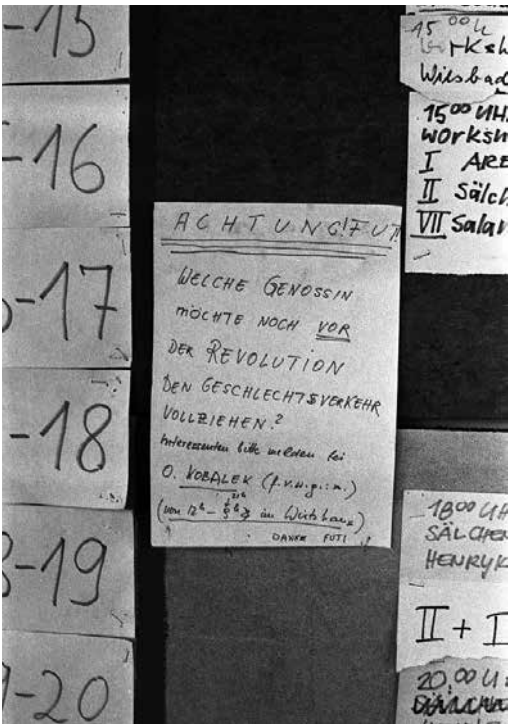 -15
-16
-17
-18
-19
-20
ACHTUNG!FUT!
WELCHE GENOSSIN
MÖCHTE NOCH VOR
DER REVOLUTION
DEN GESCHLECHTSVERKEHR
VOLLZIEHEN?
Interessenten bitte melden bei
O. KOBALEK
im Wirtshaus)
DANKE FUT!
15 00 h
Wiesbad
15 00 UH
WORKSH
I ARE
II Sälch
VII Salar
18 00 UH
SÄLCHEN
HENRYK
II + I
20.00 U